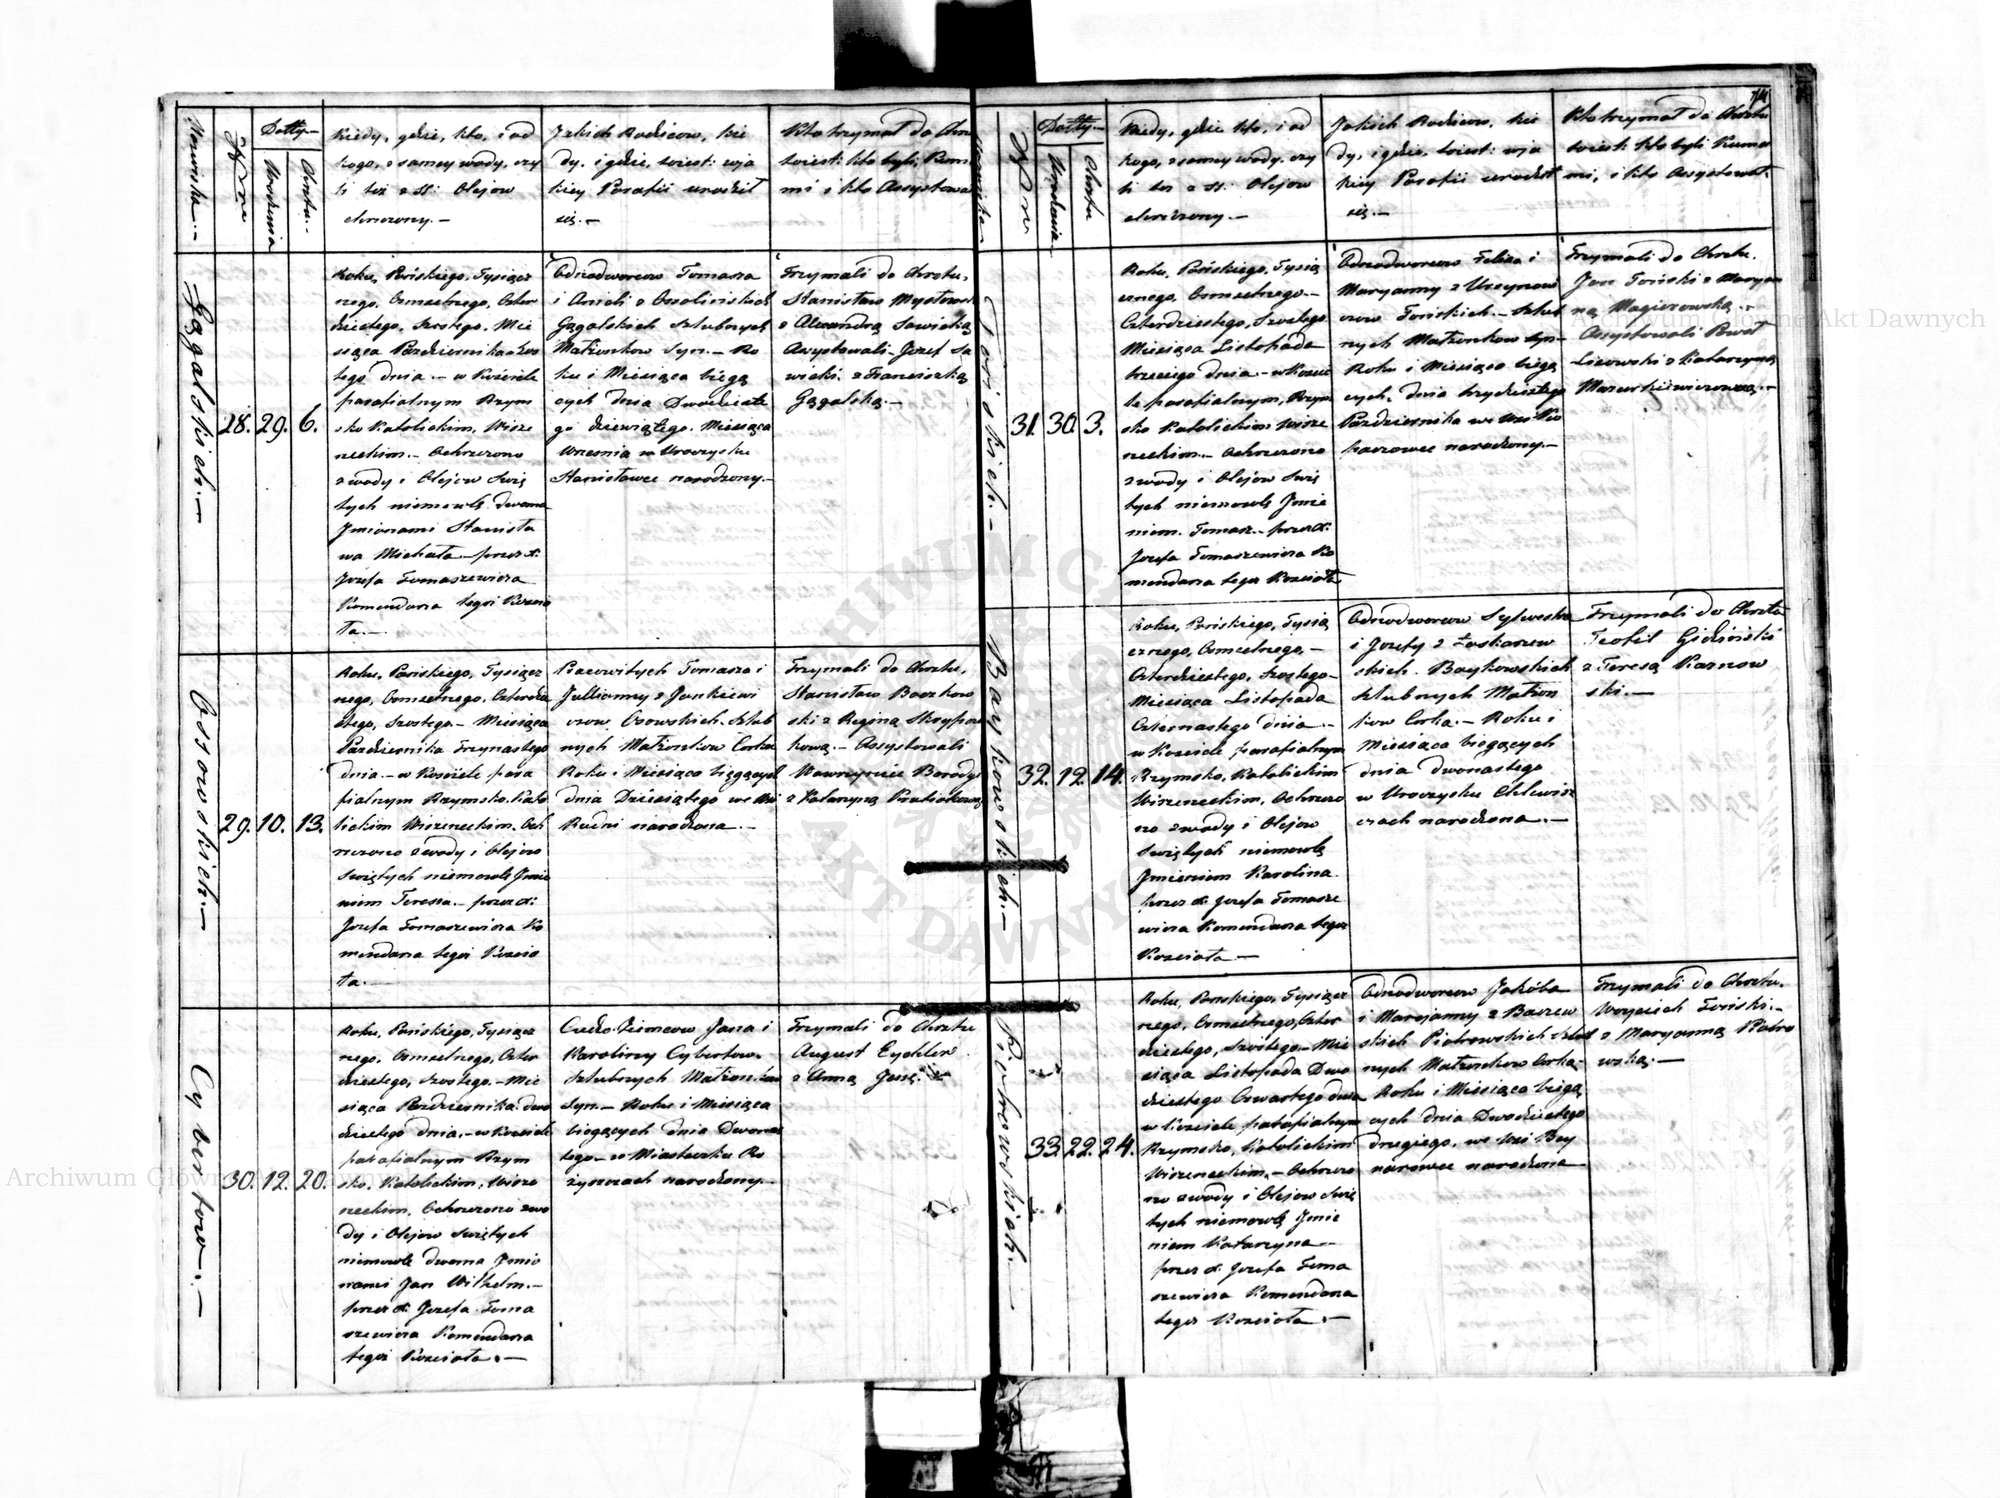 Nazwiska.—
Nro
Datty—
Urodzenia
Chrztu.—
Kiedy, gdzie, kto, i od
kogo, z samey wody, czy
li też z SS: Olejow
chrzczony.—
Jakich Rodzicow, kie
dy, i gdzie, to iest: w ja
kiey Parafii urodził
się.—
Kto trzymał do Chrz
to iest: kto byli Kum
mi i kto Assystowa
Gągalskich.—
28.
29.
6.
Roku, Pańskiego, Tysiącz
nego, Osmsetnego, Czter
dziestego, Szostego, Mie
siąca Pazdziernika szos
tego dnia.— w Kościele
parafialnym Rzym
sko Katolickim, Wisze
neckim.— Ochrzczono
z wody i Olejow Swię
tych niemowle dwoma
Jmionami Stanisła
wa Michała— przez X:
Jozefa Tomaszewicza
Komendarza tegoż Koscio
ła.—
Odnodworcow Tomasza
i Anieli z Ossolińskich
Gągalskich Szlubnych
Małżonkow Syn.— Ro
ku i Miesiąca biegą
cych dnia Dwudzieste
go dziewiątego. Miesiąca
Wrzesnia w Uroczysku
Stanisławce narodzony.—
Trzymali do Chrztu,
Stanisław Mysłows
z Alexandrą Sawicką
Assystowali Jozef Sa
wicki z Franciszką
Gągalską.—
Ossowskich.—
29.
10.
13.
Roku, Pańskiego, Tysiącz
nego, Osmsetnego, Czterdzie
stego, Szostego.— Miesiąca
Pazdziernika Trzynastego
dnia.— w Kościele para
fialnym Rzymsko. Kato
lickim Wiszeneckim. Och
rzczono z wody i Olejow
Swiętych niemowle Jmie
niem Teressa.— przez X:
Jozefa Tomaszewicza Ko
mendarza tegoż Koscio
ła.—
Pracowitych Tomasza i
Julianny z Jankiewi
czow Ossowskich. Szlub
nych Małżonkow Corka
Roku i Miesiąca biegących
dnia Dziesiątego we Wsi
Rudni narodzona.—
Trzymali do Chrztu,
Stanisław Baczkow
ski z Reginą Skrypow
kową.— Assystowali
Wawrzyniec Borody
z Katarzyną
Cybertow.—
30.
12.
20.
Roku, Pańskiego, Tysiącz
nego, Osmsetnego, Czter
dziestego, Szostego.— Mie
siąca Pazdziernika dwu
dziestego dnia.— w Kosciele
parafialnym Rzym
sko. Katolickim, Wisze
neckim, Ochrzczono z wo
dy i Olejow Swiętych
niemowle dwoma Jmio
nami Jan Wilhelm.—
przez X: Jozefa Toma
szewicza Komendarza
tegoż Koscioła.—
Cudzo-Ziemcow Jana i
Karoliny Cybertow.
Szlubnych Małżonkow
Syn.— Roku i Miesiąca
biegących dnia Dwunas
tego— w Miasteczku Ro
zyszczach narodzony.—
Trzymali do Chrztu
August Eychler
z Anną
74
Nazwiska.—
Nro
Datty—
Urodzenia
Chrztu
Kiedy, gdzie, kto, i od
kogo, z samey wody, czy
li też z SS: Olejow
chrzczony.—
Jakich Rodzicow, kie
dy, i gdzie, to iest: w ja
kiey Parafii urodził
się.—
Kto trzymał do Chrztu
to iest: kto byli Kuma
mi, i kto Assystował.
Tońskich.—
31.
30.
3.
Roku, Pańskiego, Tysią
cznego, Osmsetnego—
Czterdziestego, Szostego
Miesiąca Listopada
trzeciego dnia.— w Koscie
le parafialnym, Rzym
sko Katolickim Wisze
neckim.— Ochrzczono
z wody i Olejow Swię
tych niemowle Jmie
niem. Tomasz.— przez X:
Jozefa Tomaszewicza Ko
mendarza tegoż Kościoła
Odnodworcow Felixa i
Maryanny z Urzynowi
czow Tońskich.— Szlub
nych Małżonkow Syn—
Roku i Miesiąca biegą
cych, dnia trzydziestego
Pazdziernika we Wsi Ko
paczowce narodzony.—
Trzymali do Chrztu.
Jan Toński z Maryan
ną Magierowską.—
Assystowali
Lisowski z Katarzyną
Mazurkiewiczowną.—
Baykowskich.—
32.
12.
14.
Roku, Pańskiego, Tysią
cznego, Osmsetnego,—
Czterdziestego, Szostego—
Miesiąca Listopada
Czternastego dnia.—
w Kosciele parafialnym
Rzymsko. Katolickim
Wiszeneckim, Ochrzczo
no z wody i Olejow
Swiętych niemowle
Jmieniem Karolina
przez X: Jozefa Tomasze
wicza Komendarza tegoż
Kosciola—
Odnodworcow Sylwestra
i Jozefy z Łaskarzew
skich. Baykowskich
Szlubnych Małżon
kow Corka.— Roku i
Miesiąca biegących
dnia dwonastego
w Uroczysku Chlewisz
czach narodzona.—
Trzymali do Chrztu
Teofil Gidziński
z Teresą Karnow
ski.—
Piotrowskich.—
33.
22.
24.
Roku, Panskiego, Tysiącz
nego, Osmsetnego, Czter
dziestego, Szostego.— Mie
siąca Listopada Dwu
dziestego Czwartego dnia
w Kosciele parafialnym
Rzymsko, Katolickim
Wiszeneckim.— Ochrzczo
no z wody i Olejow Swię
tych niemowle Jmie
niem Katarzyna—
przez X: Jozefa Toma
szewicza Komendarza
tegoż Kosciola.—
Odnodworcow Jakóba
i Maryanny z Baszew
skich Piotrowskich Szlub
nych Małżonkow Corka—
Roku i Miesiąca biegą
cych dnia Dwudziestego
drugiego, we Wsi Bey
narowce narodzona
Trzymali do Chrztu.
Woyciech Toński.—
z Maryanną Piotro
wską.—
Archiwum Główne Akt Dawnych
Archiwum Główne Akt Dawnych
ARCHIWUM GŁÓWNE
AKT DAWNYCH